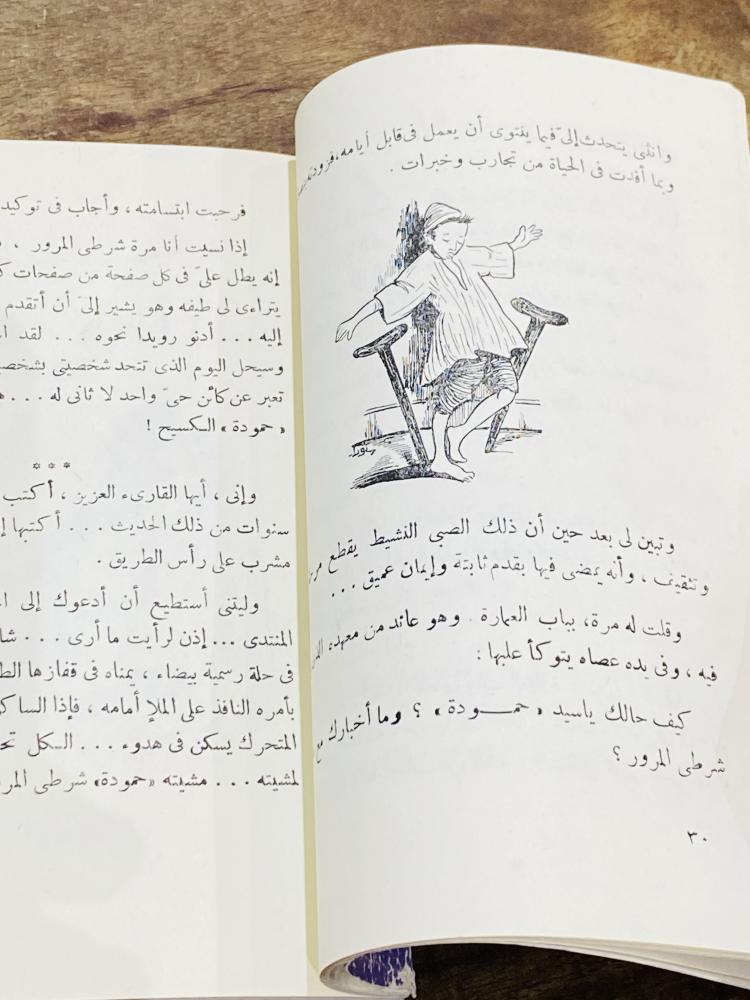 وانثنى يتحدث إلىّ فيما ينتوى أن يعمل فى قابل أيامه،
وبما أفدت فى الحياة من تجارب وخبرات .
وتبين لى بعد حين أن ذلك الصبى النشيط يقطع
وتثقيف ، وأنه يمضى فيها بقدم ثابتة وإيمان عميق ...
وقلت له مرة، بباب العمارة . وهو عائد من معهده
فيه ، وفى يده عصاه يتوكأ عليها :
كيف حالك ياسيد « حمـودة » ؟ وما أخبارك مع
شرطى المرور ؟
٣٠
فرحبت ابتسامته ، وأجاب فى توكيد
إذا نسيت أنا مرة شرطى المرور ،
إنه يطل علىّ فى كل صفحة من صفحات
يتراءى لى طيفه وهو يشير إلىّ أن أتقدم
إليه ... أدنو رويدا نحوه ... لقد
وسيحل اليوم الذى تتحد شخصيتى
تعبر عن كائن حىّ واحد لا ثانى له ...
« حمودة » الكسيح !
***
وإنى ، أيها القارىء العزيز ، أكتب
سنوات من ذلك الحديث ... أكتبها
مشرب على رأس الطريق .
وليتنى أستطيع أن أدعوك إلى
المنتدى ... إذن لرأيت ما أرى ...
فى حلة رسمية بيضاء ، يمناه فى قفازها
بأمره النافذ على الملإ أمامه ، فإذا
المتحرك يسكن فى هدوء ... الكل
لمشيئته ... مشيئته «حمودة» شرطى